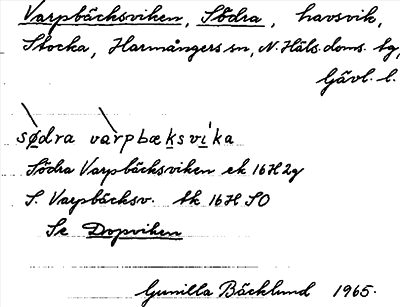 Varpbäcksviken, Södra, havsvik,
Stocka, Harmångers sn, N. Häls. doms. tg,
Gävl. l.
sødra varpbæksvika
Södra Varpbäcksviken ek 16H2g
S. Varpbäcksv. tk 16H SO
Se Dopviken
Gunilla Bäcklund 1965.